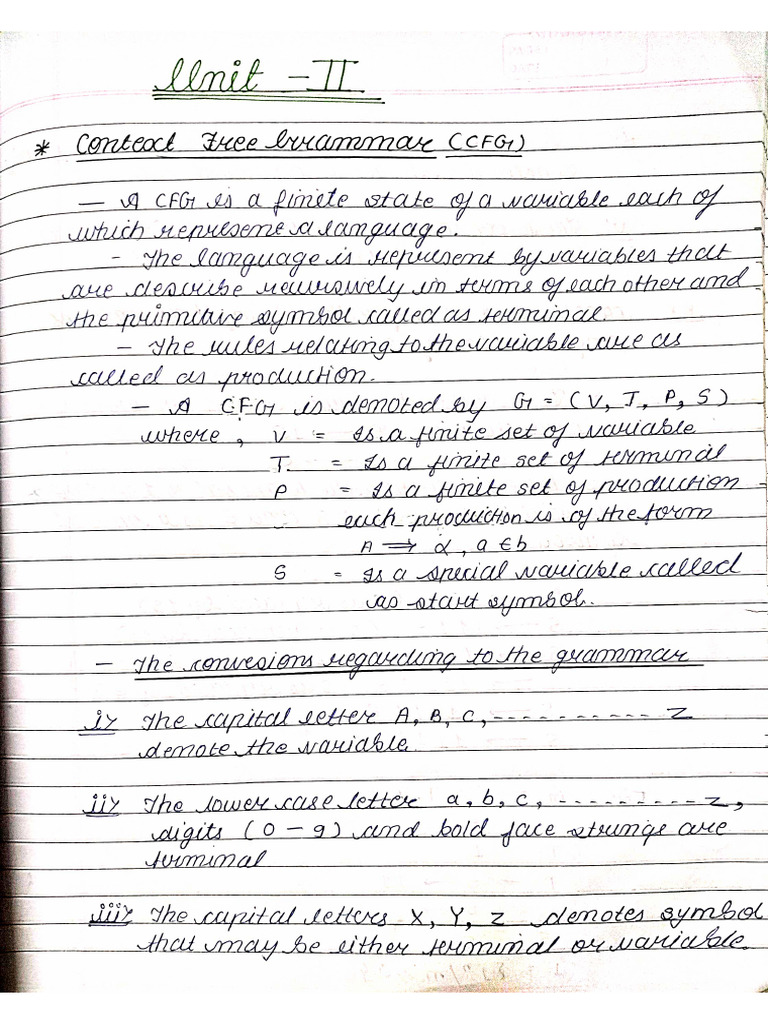 Unit - II
* Context Free Grammar (CFG)
- A CFG is a finite state of a variable each of
which represent a language.
- The language is represent by variables that
are describe recursively in terms of each other and
the primitive symbol called as terminal.
- The rules relating to the variable are as
called as production.
- A CFG is denoted by G = (V, T, P, S)
where, V = Is a finite set of variable
T. = Is a finite set of terminal
P = Is a finite set of production -
each production is of the form
A ⟹ α, a ∈ b
S = Is a special variable called
as start symbol.
- The convesions regarding to the grammar
i> The capital letter A, B, C, ---------- Z
denote the variable
ii> The lower case letter a, b, c, --------- z,
digits (0 - 9) and bold face strings are
terminal
iii> The capital letters X, Y, Z denotes symbol
that may be either terminal or variable.